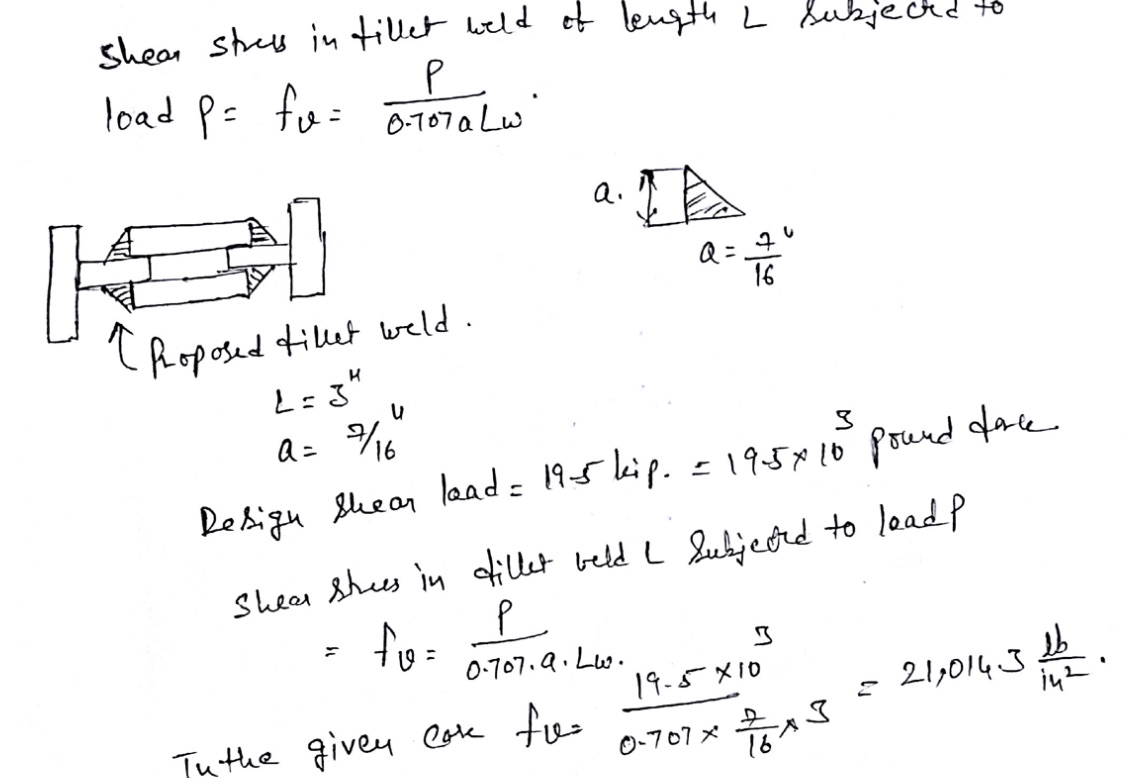 Shear stress in fillet weld of length L subjected to
load P = fv = P / 0.707 a Lw.
a.
a = 7/16"
Proposed fillet weld.
L = 3"
a = 7/16"
Design shear load = 19.5 kip. = 19.5 × 10³ pound force
Shear stress in fillet weld L subjected to load P
= fv = P / 0.707. a. Lw.
In the given case fv = 19.5 × 10³ / 0.707 × 7/16 × 3 = 21,014.3 lb/in².